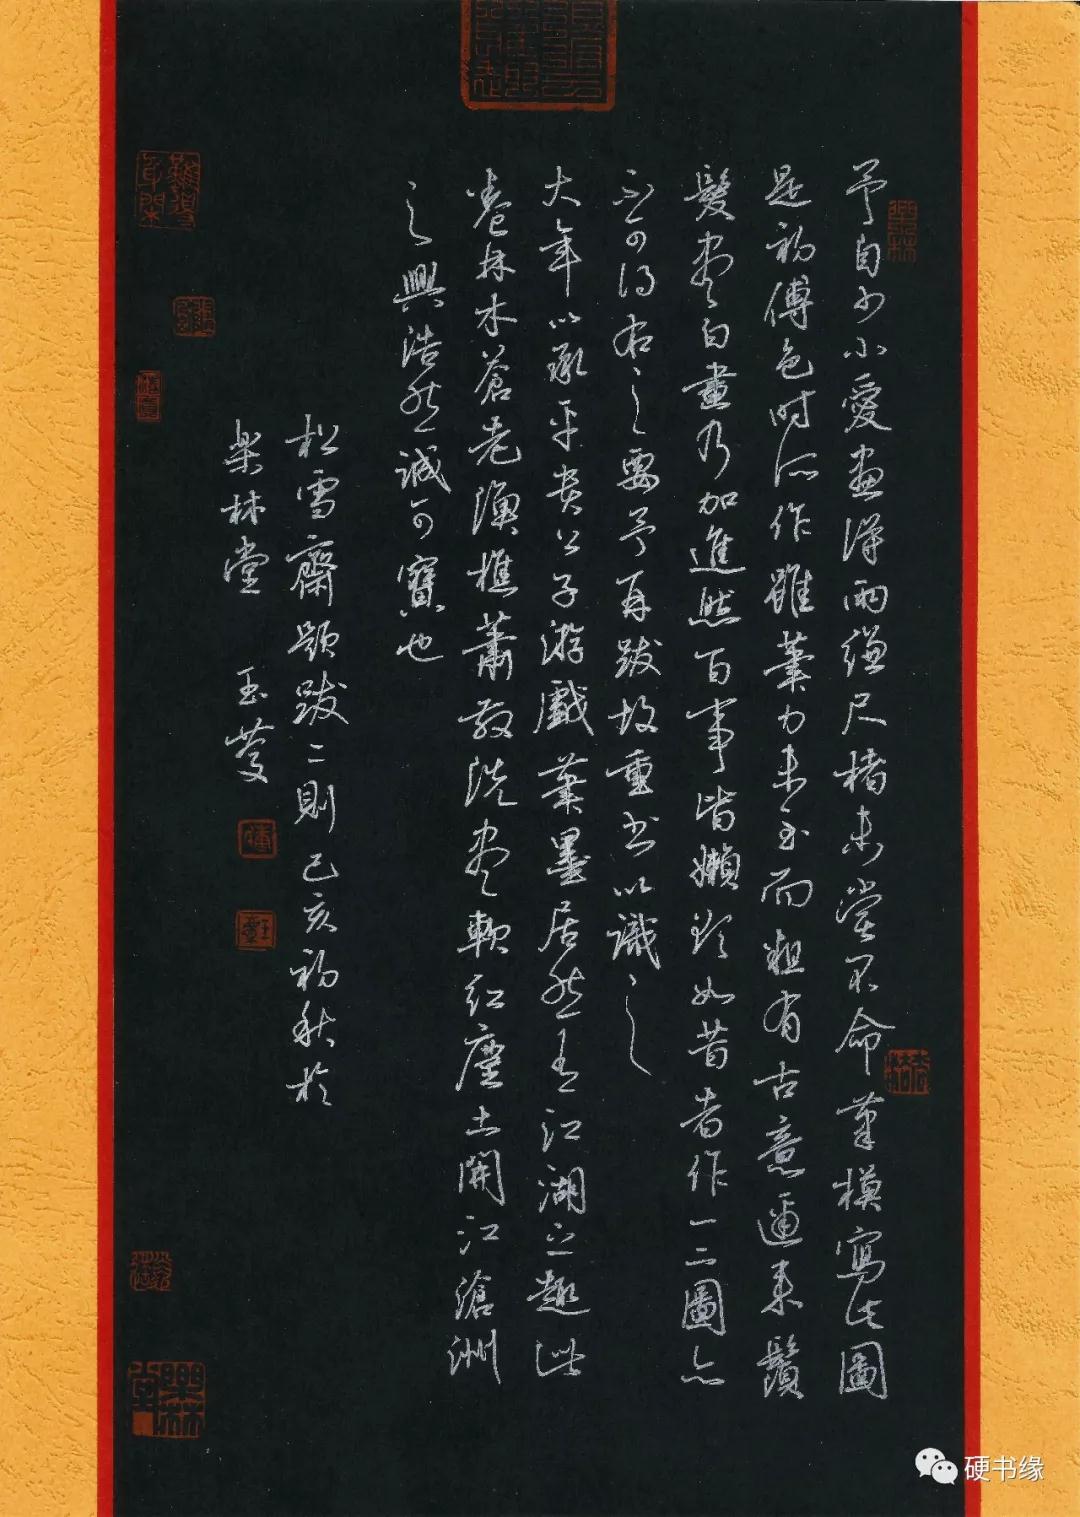 予自少小愛畫得兩縑尺楮未嘗不命筆模寫此圖
是初傅色時所作雖筆力未至而粗有古意邇来鬚
髮盡白畫乃加進然百事皆嬾欲如昔者作一二圖亦
不可得右之要予再跋故重書以識之
大年以承平貴公子游戲筆墨居然有江湖之趣此
卷林木蒼老漁樵蕭散洗盡軟紅塵土開江滄洲
之興浩然誠可寶也
松雪齋題跋二則己亥初秋於
樂林堂 玉慶
硬书缘